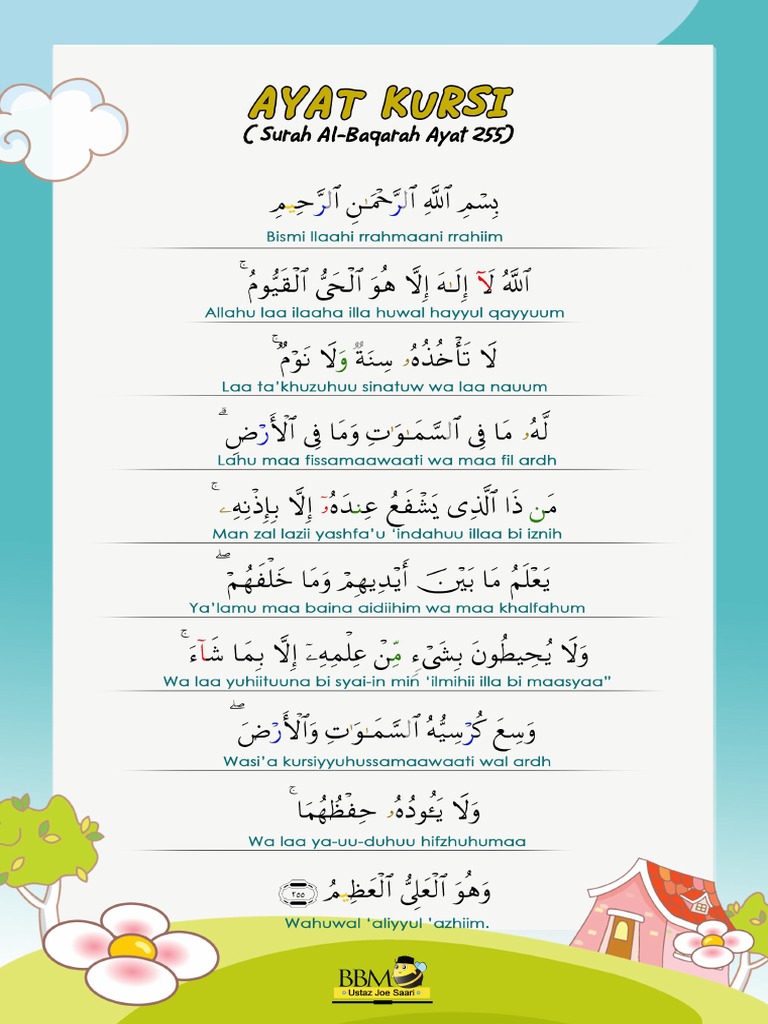 AYAT KURSI
( Surah Al-Baqarah Ayat 255)
بِسْمِ ٱللَّهِ ٱلرَّحْمَـٰنِ ٱلرَّحِيمِ
Bismi llaahi rrahmaani rrahiim
ٱللَّهُ لَآ إِلَـٰهَ إِلَّا هُوَ ٱلْحَىُّ ٱلْقَيُّومُ ۚ
Allahu laa ilaaha illa huwal hayyul qayyuum
لَا تَأْخُذُهُۥ سِنَةٌۭ وَلَا نَوْمٌۭ ۚ
Laa ta'khuzuhuu sinatuw wa laa nauum
لَّهُۥ مَا فِى ٱلسَّمَـٰوَٰتِ وَمَا فِى ٱلْأَرْضِ ۗ
Lahu maa fissamaawaati wa maa fil ardh
مَن ذَا ٱلَّذِى يَشْفَعُ عِندَهُۥٓ إِلَّا بِإِذْنِهِۦ ۚ
Man zal lazii yashfa'u 'indahuu illaa bi iznih
يَعْلَمُ مَا بَيْنَ أَيْدِيهِمْ وَمَا خَلْفَهُمْ ۖ
Ya'lamu maa baina aidiihim wa maa khalfahum
وَلَا يُحِيطُونَ بِشَىْءٍۢ مِّنْ عِلْمِهِۦٓ إِلَّا بِمَا شَآءَ ۚ
Wa laa yuhiituuna bi syai-in min 'ilmihii illa bi maasyaa"
وَسِعَ كُرْسِيُّهُ ٱلسَّمَـٰوَٰتِ وَٱلْأَرْضَ ۖ
Wasi'a kursiyyuhussamaawaati wal ardh
وَلَا يَـُٔودُهُۥ حِفْظُهُمَا ۚ
Wa laa ya-uu-duhuu hifzhuhumaa
وَهُوَ ٱلْعَلِىُّ ٱلْعَظِيمُ ٢٥٥
Wahuwal 'aliyyul 'azhiim.
BBM
Ustaz Joe Saari